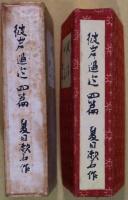 彼岸過迄 四篇 夏目漱石作
彼岸過迄 四篇 夏目漱石作